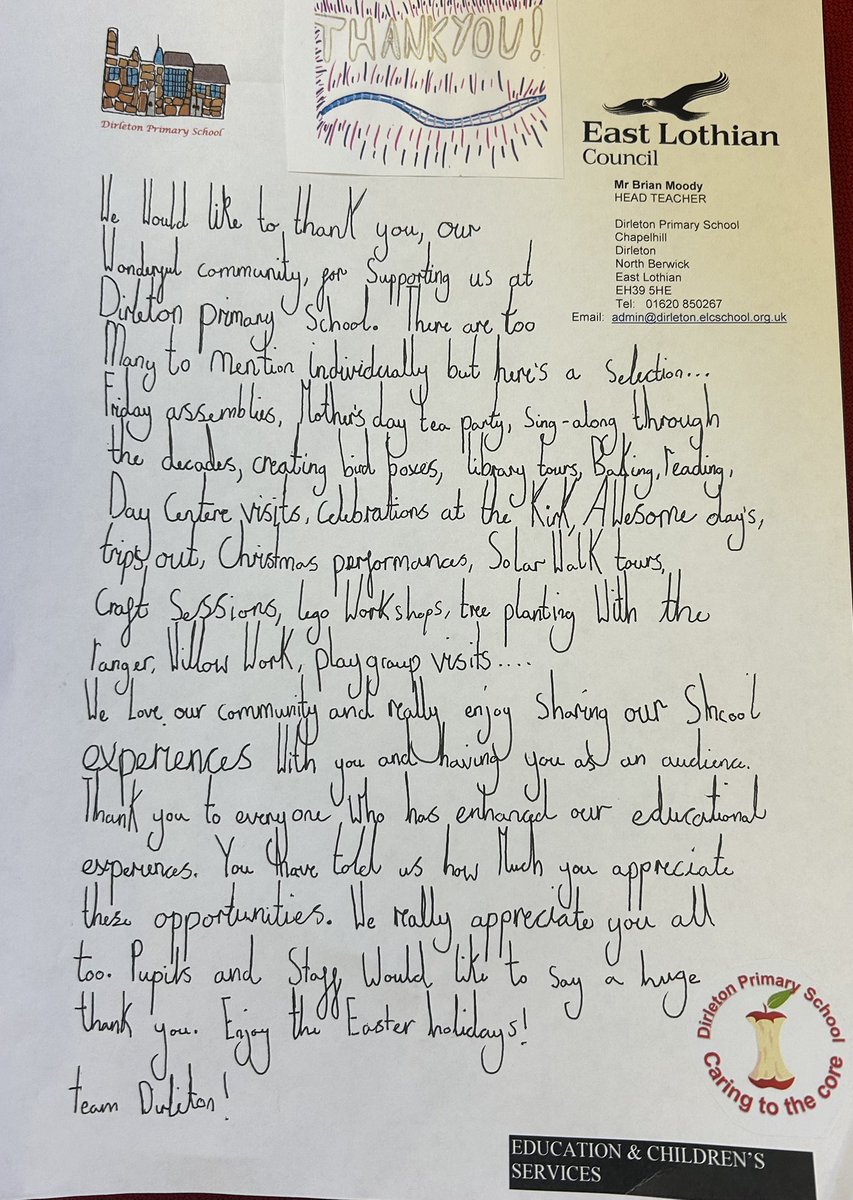 THANK YOU!
Dirleton Primary School
East Lothian
Council
Mr Brian Moody
HEAD TEACHER
Dirleton Primary School
Chapelhill
Dirleton
North Berwick
East Lothian
EH39 5HE
Tel: 01620 850267
Email: admin@dirleton.elcschool.org.uk
We Would like to thank you, our
Wonderful community, for Supporting us at
Dirleton primary School. There are too
Many to mention individually but here's a Selection...
Friday assemblies, Mother's day tea party, Sing-along through
the decades, creating bird boxes, library tours, Baking, reading,
Day Centere visits, Celebrations at the Kirk, AWesome day's,
trips out, Christmas performances, Solar Walk tours,
Craft Sessions, lego Workshops, tree planting With the
ranger, Willow Work, playgroup visits....
We Love our community and really enjoy Sharing our Shcool
experiences With you and having you as an audience.
Thank you to everyone Who has enhanced our educational
experiences. You have told us how Much you appreciate
these opportunities. We really appreciate you all
too. Pupils and Staff Would like to Say a huge
thank you. Enjoy the Easter holidays!
team Dirleton!
Dirleton Primary School
Caring to the core
EDUCATION & CHILDREN'S
SERVICES